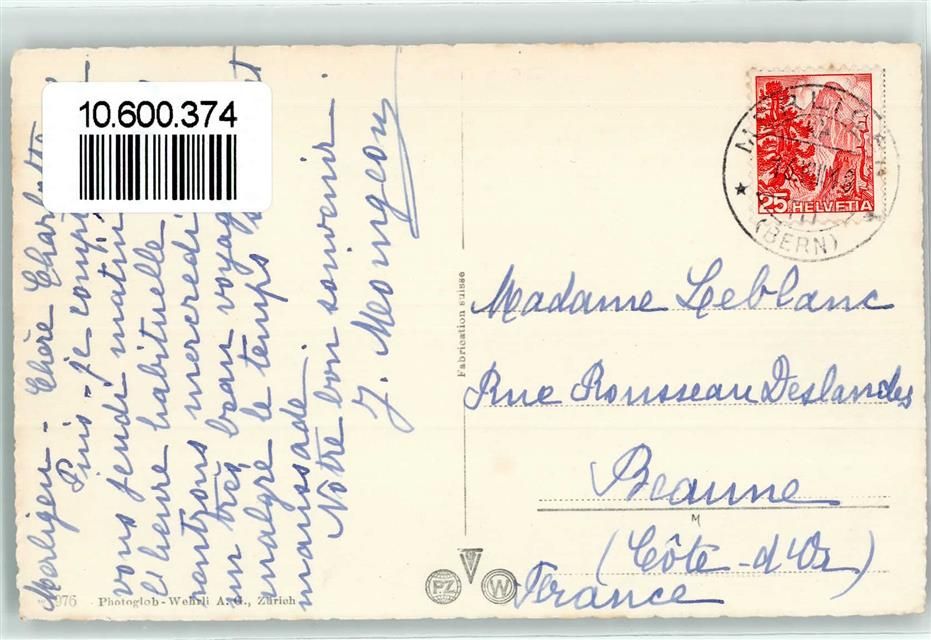 10.600.374
Merligen - Chère Charlotte
Puis-je compt
vous jeudi matin
l'heure habituelle
rentrons mercredi
un très beau voyag
malgré le temps
maussade.
Notre bon souvenir
J. Mongeon
976 Photoglob-Wehrli A. G., Zürich
Fabrication suisse
PZ
W
25 HELVETIA
(BERN)
Madame Leblanc
Rue Rousseau Deslandes
Beaune
(Côte-d'Or)
France